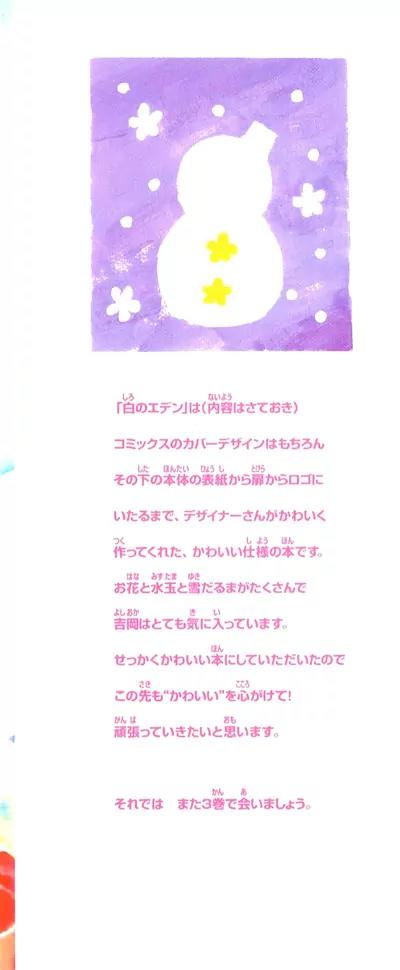 「白のエデン」は(内容はさておき)
コミックスのカバーデザインはもちろん
その下の本体の表紙から扉からロゴに
いたるまで、デザイナーさんがかわいく
作ってくれた、かわいい仕様の本です。
お花と水玉と雪だるまがたくさんで
吉岡はとても気に入っています。
せっかくかわいい本にしていただいたので
この先も“かわいい”を心がけて!
頑張っていきたいと思います。
それでは　また3巻で会いましょう。